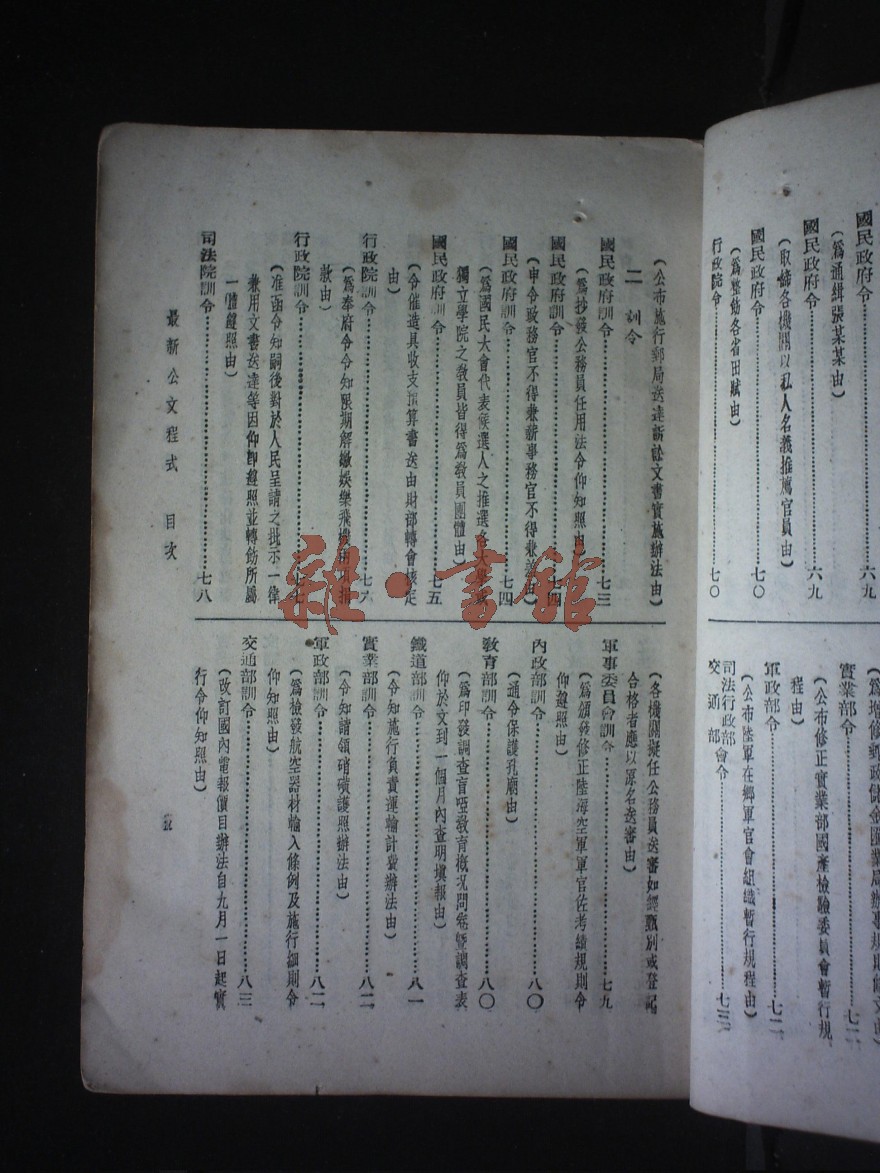 國民政府令……六九
（爲通緝張某某由）
國民政府令……六九
（取締各機關以私人名義推薦官員由）
國民政府令……七〇
（爲整飭各省田賦由）
行政院令……七〇
實業部令……七二
（公布修正實業部國產檢驗委員會暫行規
程由）
軍政部令……七二
（公布陸軍在鄉軍官會組織暫行規程由）
司法行政部
交通部會令……七三
（公布施行郵局送達訴訟文書實施辦法由）
二　訓令
國民政府訓令……七三
（爲抄發公務員任用法令仰知照由）
國民政府訓令……七四
（申令政務官不得兼薪事務官不得兼差由）
國民政府訓令……七四
（爲國民大會代表候選人之推選各大學或
獨立學院之敎員皆得爲敎員團體由）
國民政府訓令……七五
（令催造具收支預算書送由財部轉會核定
由）
行政院訓令……七六
（爲奉府令令知限期解繳娛樂飛機
款由）
行政院訓令……七七
（准函令知嗣後對於人民呈請之批示一律
兼用文書送達等因仰卽遵照並轉飭所屬
一體遵照由）
司法院訓令……七八
（各機關擬任公務員送審如經甄別或登記
合格者應以原名送審由）
軍事委員會訓令……七九
（爲頒發修正陸海空軍軍官佐考績規則令
仰遵照由）
內政部訓令……八〇
（通令保護孔廟由）
敎育部訓令……八〇
（爲印發調查盲啞敎育概况問卷曁調查表
仰於文到一個月內查明塡報由）
鐵道部訓令……八一
（令知施行負責運輸計費辦法由）
實業部訓令……八二
（令知請領硝磺護照辦法由）
軍政部訓令……八二
（爲檢發航空器材輸入條例及施行細則令
仰知照由）
交通部訓令……八三
（改訂國內電報價目辦法自九月一日起實
行令仰知照由）
最新公文程式　目次
五
雜·書館